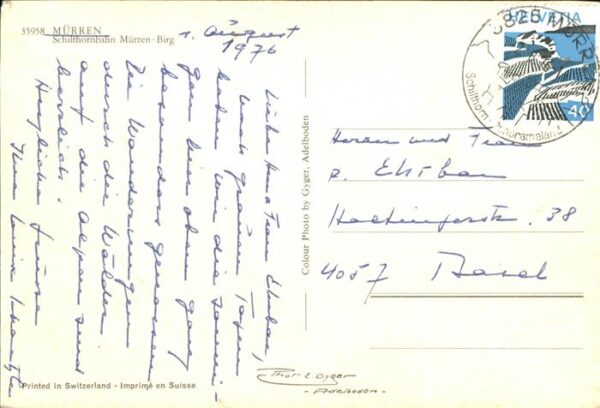 35958 MÜRREN
Schilthornbahn Mürren-Birg
1. August
1976
Liebe Frau Ehrban,
nach grauen Tagen
haben wir die sonni-
gen hier oben ganz
besonders genossen
Die Wanderungen
durch die Wälder
auf die Alpen sind
herrlich.
Herzliche Grüsse
Ihre
Herrn und Frau
R. Ehrban
Holtingerstr. 38
4057 Basel
HELVETIA
40
3825 MÜRREN
Schilthorn-
Colour Photo by Gyger, Adelboden
Printed in Switzerland - Imprimé en Suisse
Phot. E. Gyger
- Adelboden -